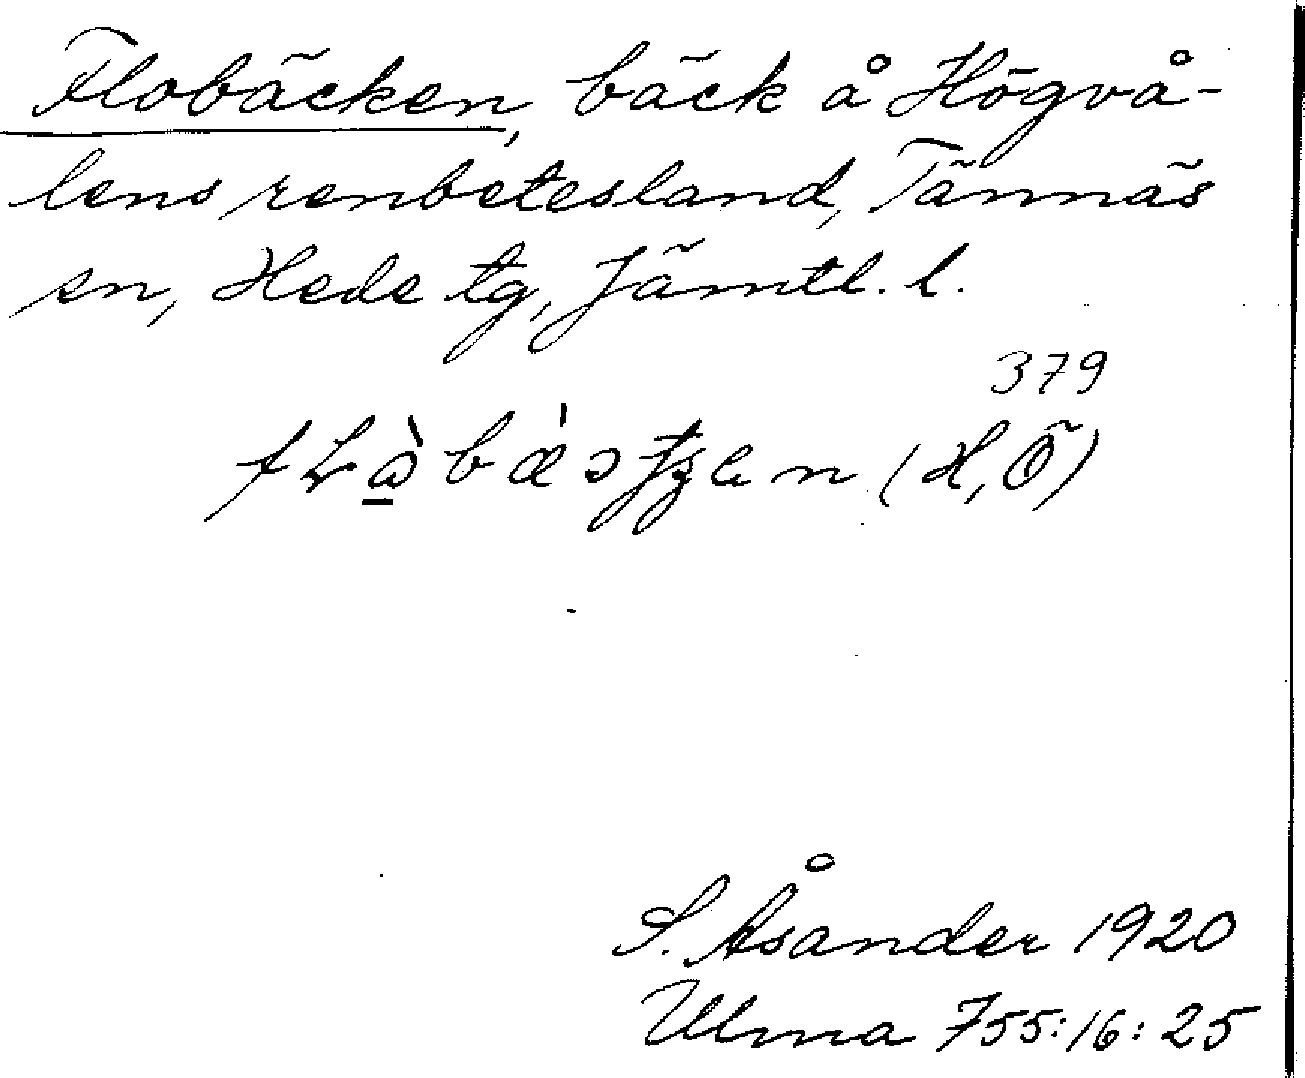 Flobäcken, bäck å Högvå-
lens renbetesland, Tännäs
sn, Hede tg, Jämtl. l.
379
(H, Ö)
S. Åsander 1920
Ulma 755:16:25